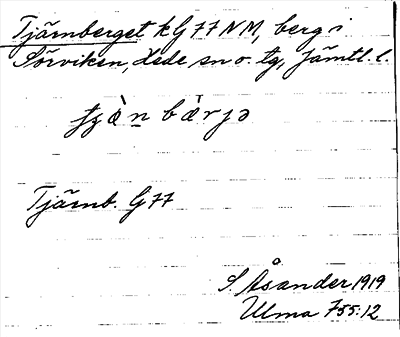 Tjärnberget kG 77 NM, berg i
Sörviken, Lede sn o. tg, Jämtl. l.
Tjärnb. G 77
S. Åsander 1919
Ulma 755:12